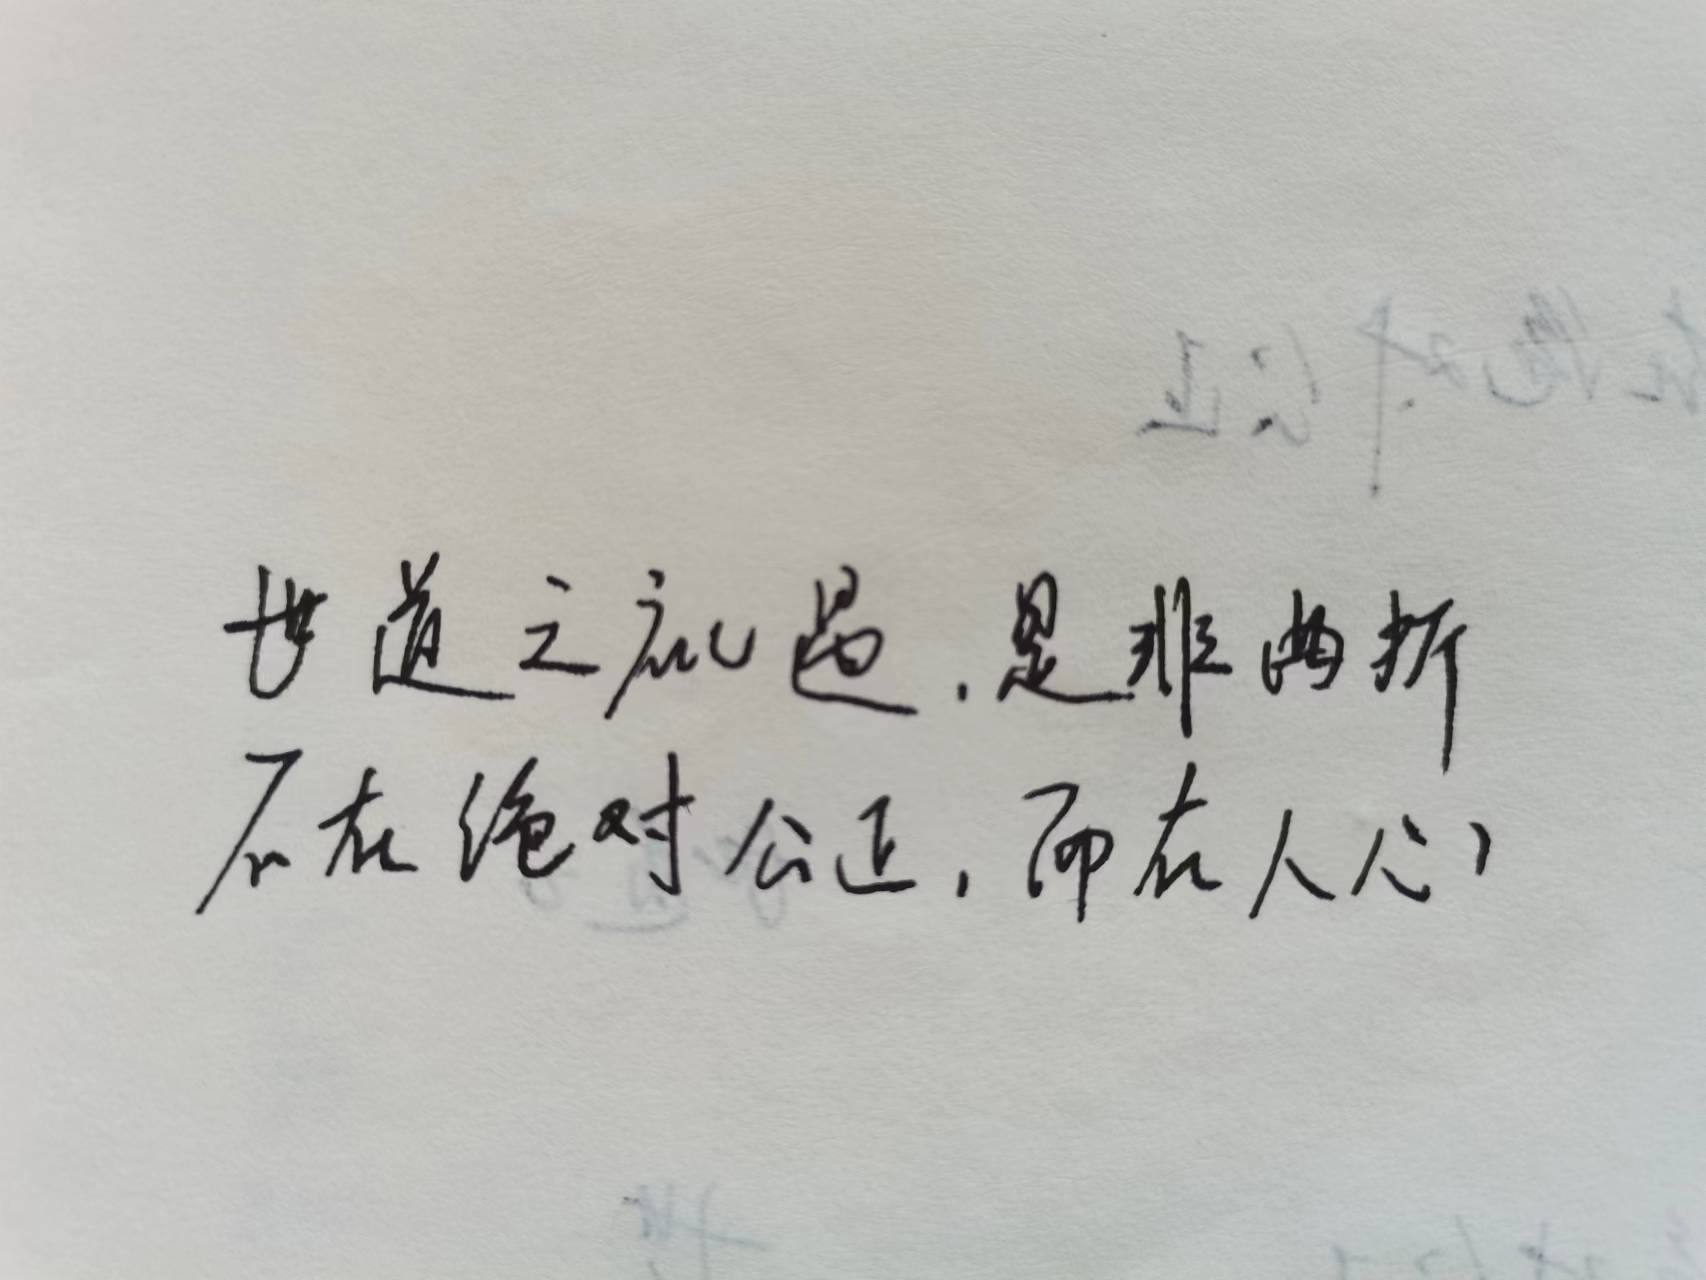 世道之礼遇，是非曲折
不在绝对公正，而在人心